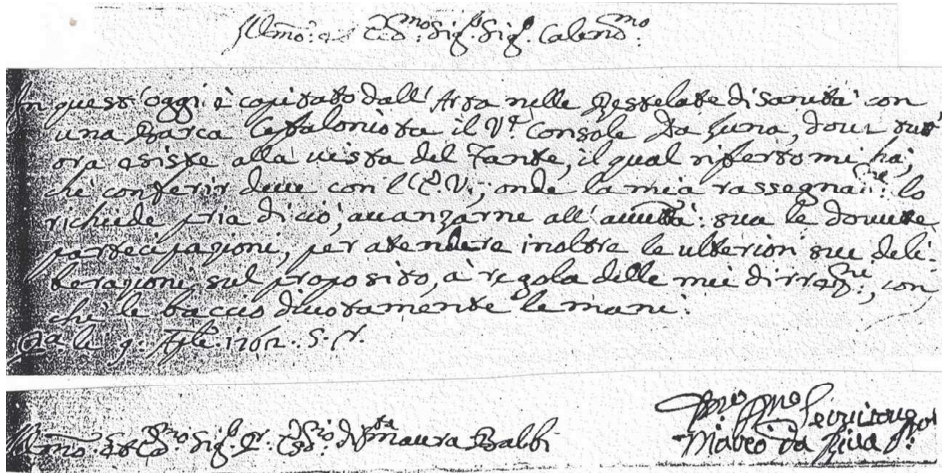 Illmo: et Eccmo: Sigr: Sigr: Colendmo:
In quest'oggi è capitato dall'Arta nelle Restelate di sanità con
una Barca Cefaloniota il Ve. Console Da Luna, doue tut'
ora esiste alla uista del Fante, il qual rifferto mi hà,
che conferir deue con l'E.V., onde la mia rassegnane: lo
richiede pria di ciò, auanzarne all' sua le douute
partecipazioni, per atendere inoltre le ulteriori sue deli:
berazioni sul proposito, à regola delle mie con
che le baccio diuotamente le mani.
li 9. 1762. S.V.
Illmo: et Eccmo: Sigr. di Maura Balbi
Matteo da Riua